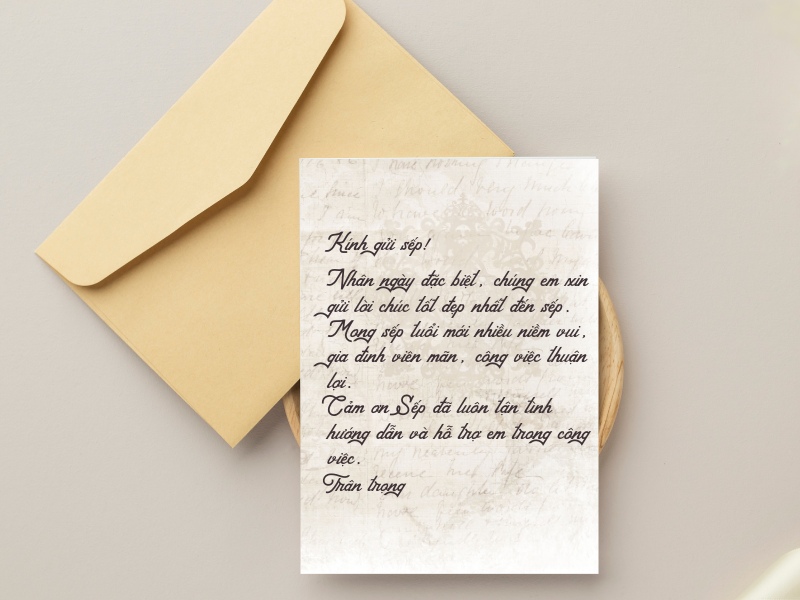 Kính gửi sếp!
Nhân ngày đặc biệt, chúng em xin
gửi lời chúc tốt đẹp nhất đến sếp.
Mong sếp tuổi mới nhiều niềm vui,
gia đình viên mãn, công việc thuận
lợi.
Cảm ơn Sếp đã luôn tận tình
hướng dẫn và hỗ trợ em trong công
việc.
Trân trọng